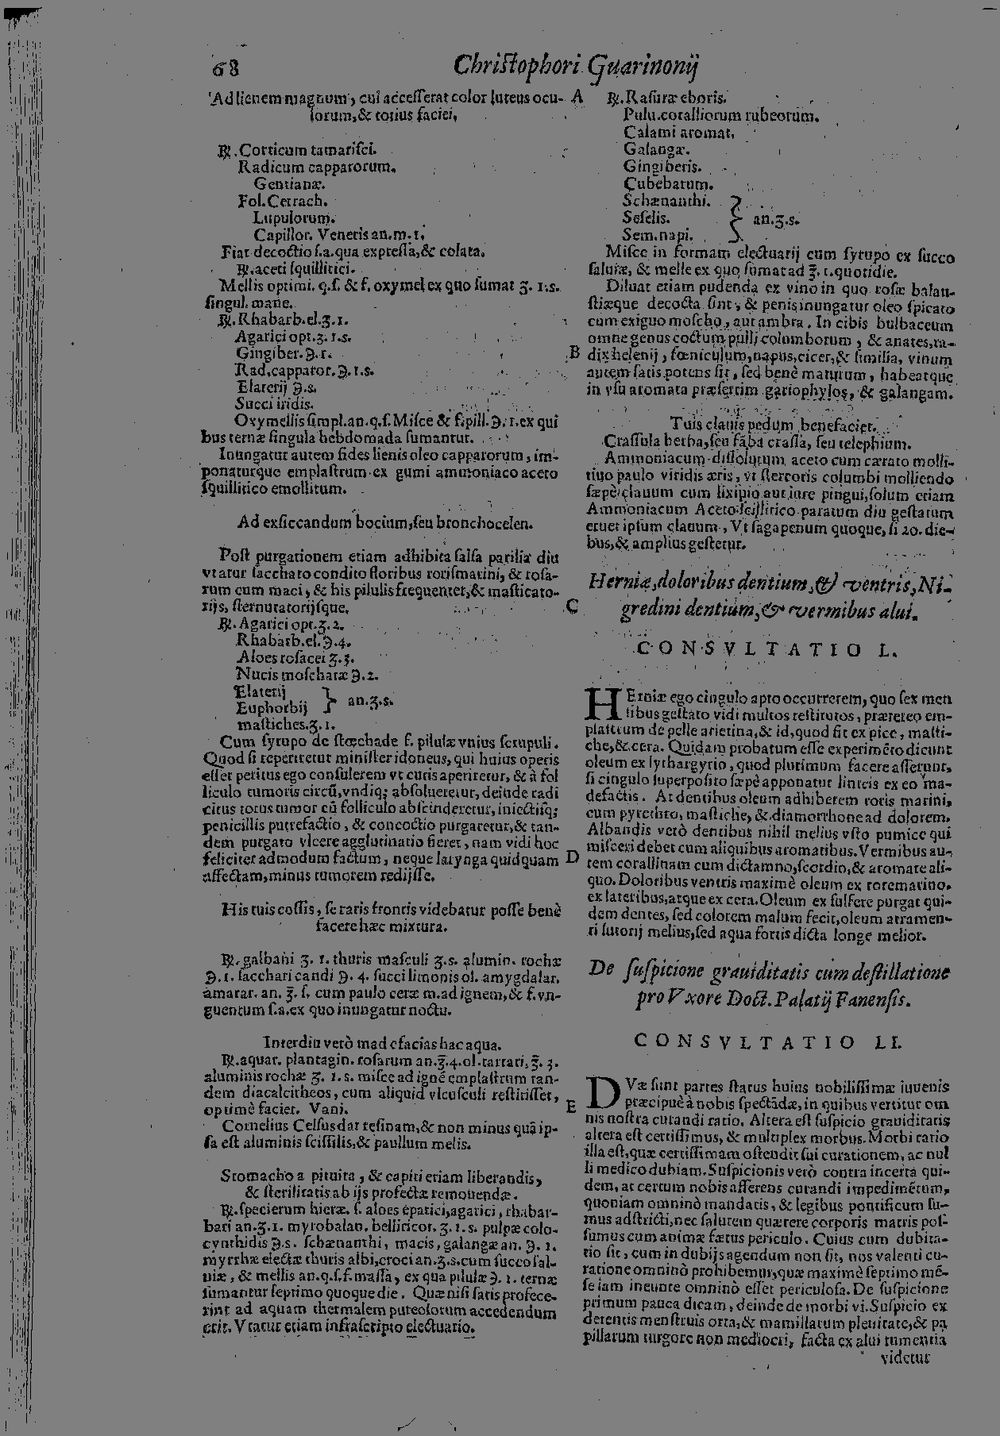 68
Christophori Guarinonij
Ad lienem magnum, cui accesserat color luteus ocu-
lorum, & totius faciei,
℞. Corticum tamarisci.
Radicum capparorum.
Gentianæ.
Fol. Cetrach.
Lupulorum.
Capillor. Veneris an. m. 1.
Fiat decoctio s.a. qua expressa, & colata.
℞. aceti squillitici.
Mellis optimi. q.s. & f. oxymel ex quo sumat ʒ. 1.s.
singul. mane.
℞. Rhabarb. el. ʒ. 1.
Agarici opt. ʒ. 1.s.
Gingiber. ℈. 1.
Rad. cappator. ℈. 1.s.
Elaterij ℈.s.
Succi iridis.
Oxymellis simpl. an. q.s. Misce & f. pill. ℈. 1. ex qui
bus ternæ singula hebdomada sumantur.
Inungatur autem sides lienis oleo capparorum, im-
ponaturque emplastrum ex gumi amuroniaco aceto
squillitico emollitum.
Ad exsiccandum bocium, seu bronchocelen.
Post purgationem etiam adhibita salsa parilia diu
vtatur saccharo condito floribus rorismarini, & rosa-
rum cum maci, & his pilulis frequenter, & masticato-
rijs, sternutatorijsque.
℞. Agarici opt. ʒ. 2.
Rhabarb. el. ℈. 4.
Aloes rosacei ʒ. 3.
Nucis moschatæ ℈. 2.
Elaterij
Euphorbij } an. ʒ.s.
mastiches. ʒ. 1.
Cum syrupo de stœchade f. pilulæ vnius scrupuli.
Quod si reperiretur minister idoneus, qui huius operis
esset peritus ego consulerem vt cutis aperiretur, & à fol
liculo tumoris circũ, vndiq; absolueretur, deinde radi
citus totus tumor cũ folliculo abscinderetur, iniectisq;
penicillis putrefactio, & concoctio purgaretur, & tan-
dem purgato vlcere agglutinatio fieret, nam vidi hoc
feliciter admodum factum, neque larynga quidquam
affectam, minus tumorem redijsse.
His tuis cossis, se raris frontis videbatur posse benè
facere hæc mixtura.
℞. galbani ʒ. 1. thuris masculi ʒ.s. alumin. rochæ
℈. 1. sacchari candi ℈. 4. succi limonis ol. amygdalar.
amarar. an. ℥. s. cum paulo ceræ m. ad ignem, & f. vn-
guentum s.a. ex quo inungatur noctu.
Interdiu verò madefacias hac aqua.
℞. aquar. plantagin. rosarum an. ℥. 4. ol. tartari, ℥. 3.
aluminis rochæ ʒ. 1. s. misce ad ignẽ emplastrum tan-
dem diacalcitheos, cum aliquid vlcusculi restitisset,
optimè faciet. Vani.
Cornelius Celsus dat resinam, & non minus quã ip-
sa est aluminis scissilis, & paullum melis.
Stomacho a pituita, & capiti etiam liberandis,
& sterilitatis ab ijs profectæ remouendæ.
℞. specierum hieræ. s. aloes epatici, agarici, rhabar-
bari an. ʒ. 1. myrobalan. belliricor. ʒ. 1.s. pulpæ colo-
cynthidis ℈.s. schænanthi, macis, galangæ an. ℈. 1.
myrrhæ electæ thuris albi, croci an. ʒ.s. cum succo sal-
uiæ, & mellis an. q.s. f. massa, ex qua pilulæ ℈. 1. ternæ
sumantur septimo quoque die. Quæ nisi satis profece-
rint ad aquam thermalem puteolorum accedendum
erit. Vtatur etiam infrascripto electuario.
A
℞. Rasuræ eboris.
Pulu. coralliorum rubeorum.
Calami aromat.
Galangæ.
Gingiberis.
Cubebarum.
Schænanthi.
Seselis. } an. ʒ.s.
Sem. napi.
Misce in formam electuarij cum syrupo ex succo
saluiæ, & melle ex quo sumat ad ℥. 1. quotidie.
Diluat etiam pudenda ex vino in quo rosæ balau-
stiæque decocta sint, & penis inungatur oleo spicato
cum exiguo moscho, aut ambra. In cibis bulbaceum
omne genus coctum pulli columborum, & anates, ra-
B
dix helenij, fœniculum, napus, cicer, & similia, vinum
autem satis potens sit, sed benè maturum, habeatque
in vsu aromata præsertim gariophylos, & galangam.
Tuis clauis pedum benefaciet.
Crassula herba, seu faba crassa, seu telephium.
Ammoniacum dissolutum aceto cum cærato molli-
tiuo paulo viridis æris, vt stercoris columbi molliendo
sæpè clauum cum lixipio aut iure pingui, solum etiam
Ammoniacum Aceto scillitico paratum diu gestatum
eruet ipsum clauum, Vt sagapenum quoque, si 20. die-
bus, & amplius gestetur.
Herniæ, doloribus dentium, & ventris, Ni-
C
gredini dentium, & vermibus alui.
CONSVLTATIO L.
HErniæ ego cingulo apto occurrerem, quo sex men
sibus gestato vidi multos restitutos, præterea em-
plastrum de pelle arietina, & id, quod fit ex pice, masti-
che, & cera. Quidam probatum esse experimẽto dicunt
oleum ex lythargyrio, quod plurimum facere asserunt,
si cingulo superposito sæpè apponatur linteis ex eo ma-
defactis. At dentibus oleum adhiberem roris marini,
cum pyrethro, mastiche, & diamorrhone ad dolorem.
Albandis verò dentibus nihil melius vsto pumice qui
misceri debet cum aliquibus aromatibus. Vermibus au-
D
tem corallinam cum dictamno, scordio, & aromate ali-
quo. Doloribus ventris maximè oleum ex roremarino,
ex lateribus, atque ex cera. Oleum ex sulfere purgat qui-
dem dentes, sed colorem malum fecit, oleum atramen-
ti sutorij melius, sed aqua fortis dicta longe melior.
De suspicione grauiditatis cum destillatione
pro Vxore Doct. Palatij Fanensis.
CONSVLTATIO LI.
DVæ sunt partes status huius nobilissimæ iuuenis
E
præcipuè a nobis spectãdæ, in quibus vertitur om
nis nostra curandi ratio. Altera est suspicio grauiditatis
altera est certissimus, & multiplex morbus. Morbi ratio
illa est, quæ certissimam ostendit sui curationem, ac nul
li medico dubiam. Suspicionis verò contra incerta qui-
dem, at certum nobis afferens curandi impedimẽtum,
quoniam omninò mandatis, & legibus pontificum su-
mus adstricti, nec salutem quærere corporis matris pos-
sumus cum animæ fætus periculo. Cuius cum dubita-
tio sit, cum in dubijs agendum non sit, nos valenti cu-
ratione omninò prohibemur, quæ maximè septimo mẽ-
se iam ineunte omninò esset periculosa. De suspicione
primum pauca dicam, deinde de morbi vi. Suspicio ex
detentis menstruis orta, & mamillarum plenitate, & pa
pillarum turgore non mediocri, facta ex alui tumentia
videtur